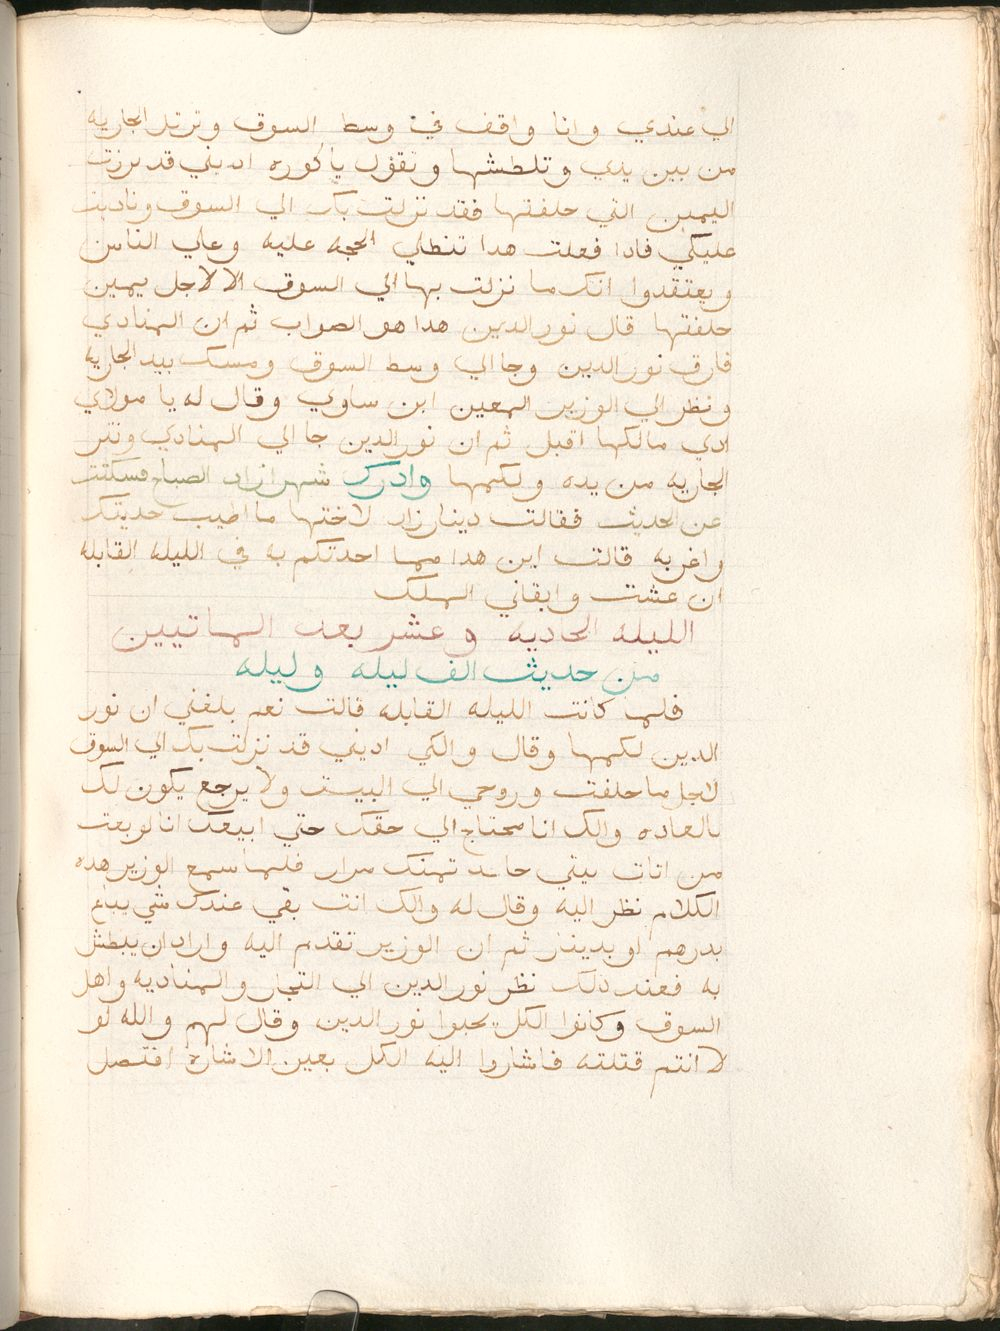 الي عندي وانا واقف في وسط السوق وتنتر الجاريه
من بين يدي وتلطشها وتقول ياكوره اديني قد برزت
اليمين التي حلفتها فقد نزلت بك الي السوق وناديت
عليكي فادا فعلت هدا تنطلي الحجه عليه وعلي الناس
ويعتقدوا انك ما نزلت بها الي السوق الا لاجل يمين
حلفتها قال نور الدين هدا هو الصواب ثم ان المنادي
فارق نور الدين وجا الي وسط السوق ومسك بيد الجاريه
ونظر الي الوزير المعين ابن ساوي وقال له يا مولاي
ادي مالكها اقبل ثم ان نور الدين جا الي المنادي ونتر
الجاريه من يده ولكمها وادرك شهرازاد الصباح فسكتت
عن الحديث فقالت دينارزاد لاختها ما اطيب حديتك
واغربه قالت اين هدا مما احدتكم به في الليله القابله
ان عشت وابقاني الملك
الليله الحاديه وعشر بعد الماتيين
من حديث الف ليله وليله
فلما كانت الليله القابله قالت نعم بلغني ان نور
الدين لكمها وقال والكي اديني قد نزلت بك الي السوق
لاجل ما حلفت وروحي الي البيت ولا يرجع يكون لك
بالعاده والك انا محتاج الي حقك حتي ابيعك انا لو بعت
من اتات بيتي جا تمنك مرار فلما سمع الوزير هده
الكلام نظر اليه وقال له والك انت بقي عندك شي يباع
بدرهم او بدينار ثم ان الوزير تقدم اليه واراد ان يبطش
به فعند دلك نظر نور الدين الي التجار والمناديه واهل
السوق وكانوا الكل يحبوا نور الدين وقال لهم والله لو
لا انتم قتلته فاشاروا اليه الكل بعين الاشاره افتصل